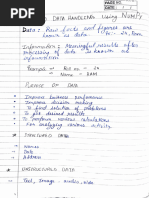 PAGE NO.
DATE
DATA HANDLING Using NumPy
Data : Raw facts and figures are
known as data. to - 20, Ram
Information : Meaningful results after
processing of data is known as
information
Example → Roll no - 20
→ Name - RAM
PURPOSE OF DATA
→ Improve business performance
→ Improve decision making
→ To find solution of problems
→ To get desired results
→ To perform various calculations
→ For analyzing various activity
* STRUCTURED DATA
→ Names
→ Dates
→ Address
* UNSTRUCTURED DATA
→ Text, Image, audio, video